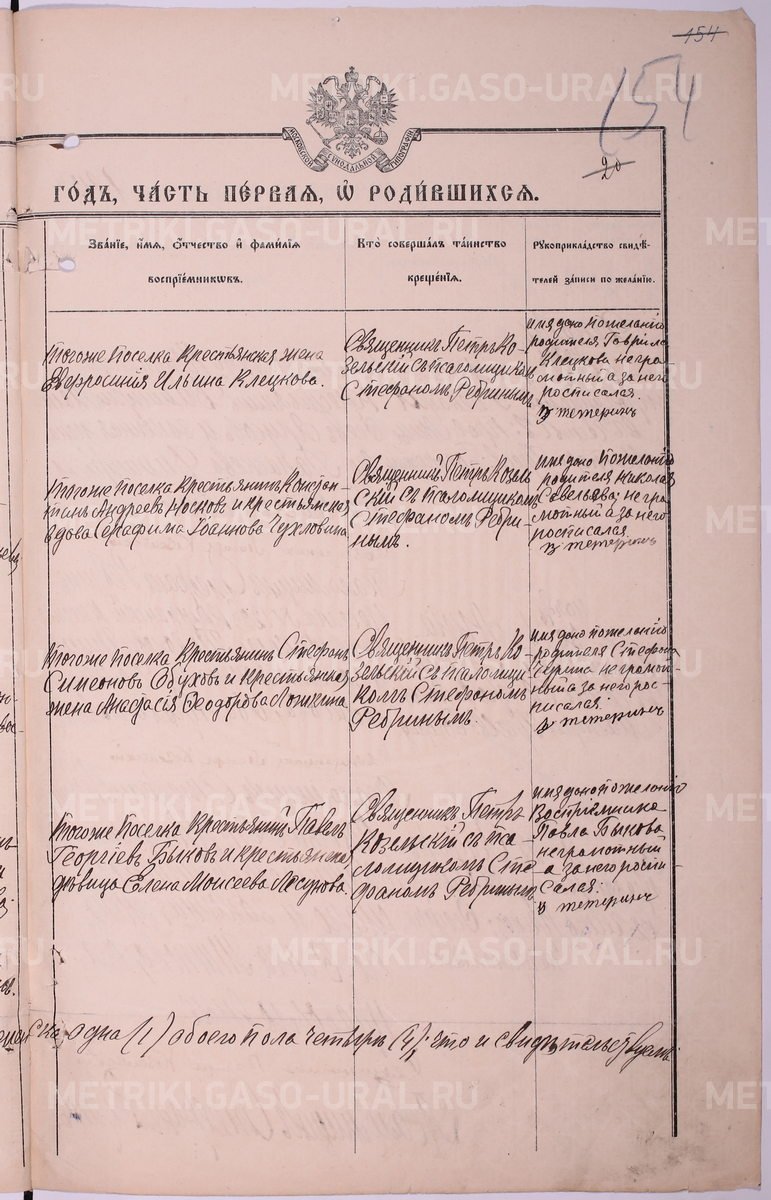 154
154
20
МОСКОВСКОЙ СѴНОДАЛЬНОЙ ТИПОГРАФІИ
ГОДЪ, ЧАСТЬ ПЕРВАЯ, Ѡ РОДИВШИХСЯ.
Званіе, имя, отчество и фамилія
воспріемниковъ.
Кто совершалъ таинство
крещенія.
Рукоприкладство свидѣ-
телей записи по желанію.
Тогоже поселка крестьянская жена
Евфросинія Ильина Клецкова.
Священникъ Петръ Ко-
зельскій съ псаломщикомъ
Стефаномъ Ребринымъ
имя дано по желанію
родителя Гаврила
Клецкова неграм-
мотный а за него
росписалая
В Тетеринъ
Тогоже поселка крестьянинъ Констан-
тинъ Андреевъ Носковъ и крестьянская
вдова Серафима Іоаннова Чухловина
Священникъ Петръ Козель-
скій съ псаломщикомъ
Стефаномъ Ребри-
нымъ.
имя дано по желанію
родителя Николая
Савельева; негра-
мотный а за него
росписалая.
В Тетеринъ
Тогоже поселка крестьянинъ Стефанъ
Симеоновъ Обуховъ и крестьянская
жена Анастасія Ѳеодорова
Священникъ Петръ Ко-
зельскій съ псаломщи-
комъ Стефаномъ
Ребринымъ.
имя дано по желанію
родителя Стефана
неграмот-
ный а за него рос-
писалая
В Тетеринъ
Тогоже поселка крестьянинъ Павелъ
Георгіевъ Быковъ и крестьянская
девица Елена Моисеева
Священникъ Петръ
Козельскій съ пса-
ломщикомъ Сте-
фаномъ Ребринымъ
имя дано по желанію
Воспріемника
Павла Быкова
неграмотный
а за него роспи-
салая:
В Тетеринъ
одна (1) обоего пола четыре (4); что и свидѣтельствуемъ
METRIKI.GASO-URAL.RU